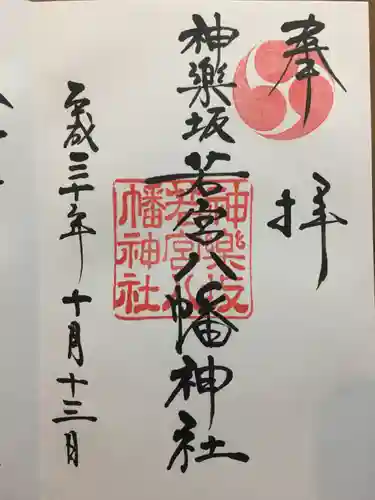 奉拝
神楽坂若宮八幡神社
神楽坂
若宮八
幡神社
平成三十年十月十三日